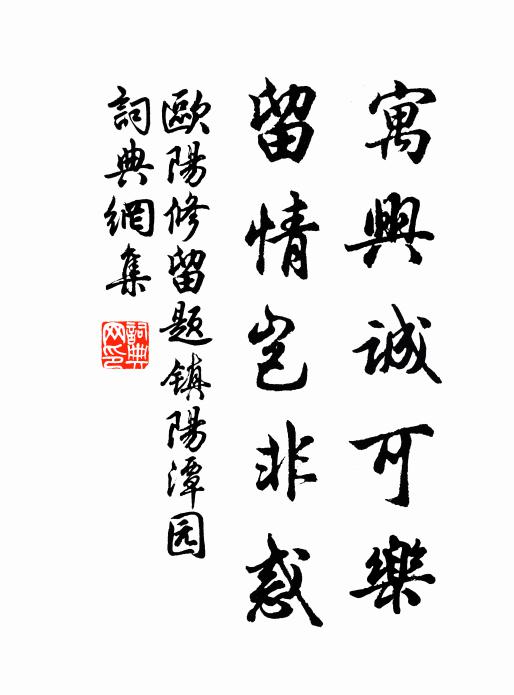 寓興誠可樂
留情岂非惑
歐陽修留題镇陽潭园
詞典網集
詞典网印